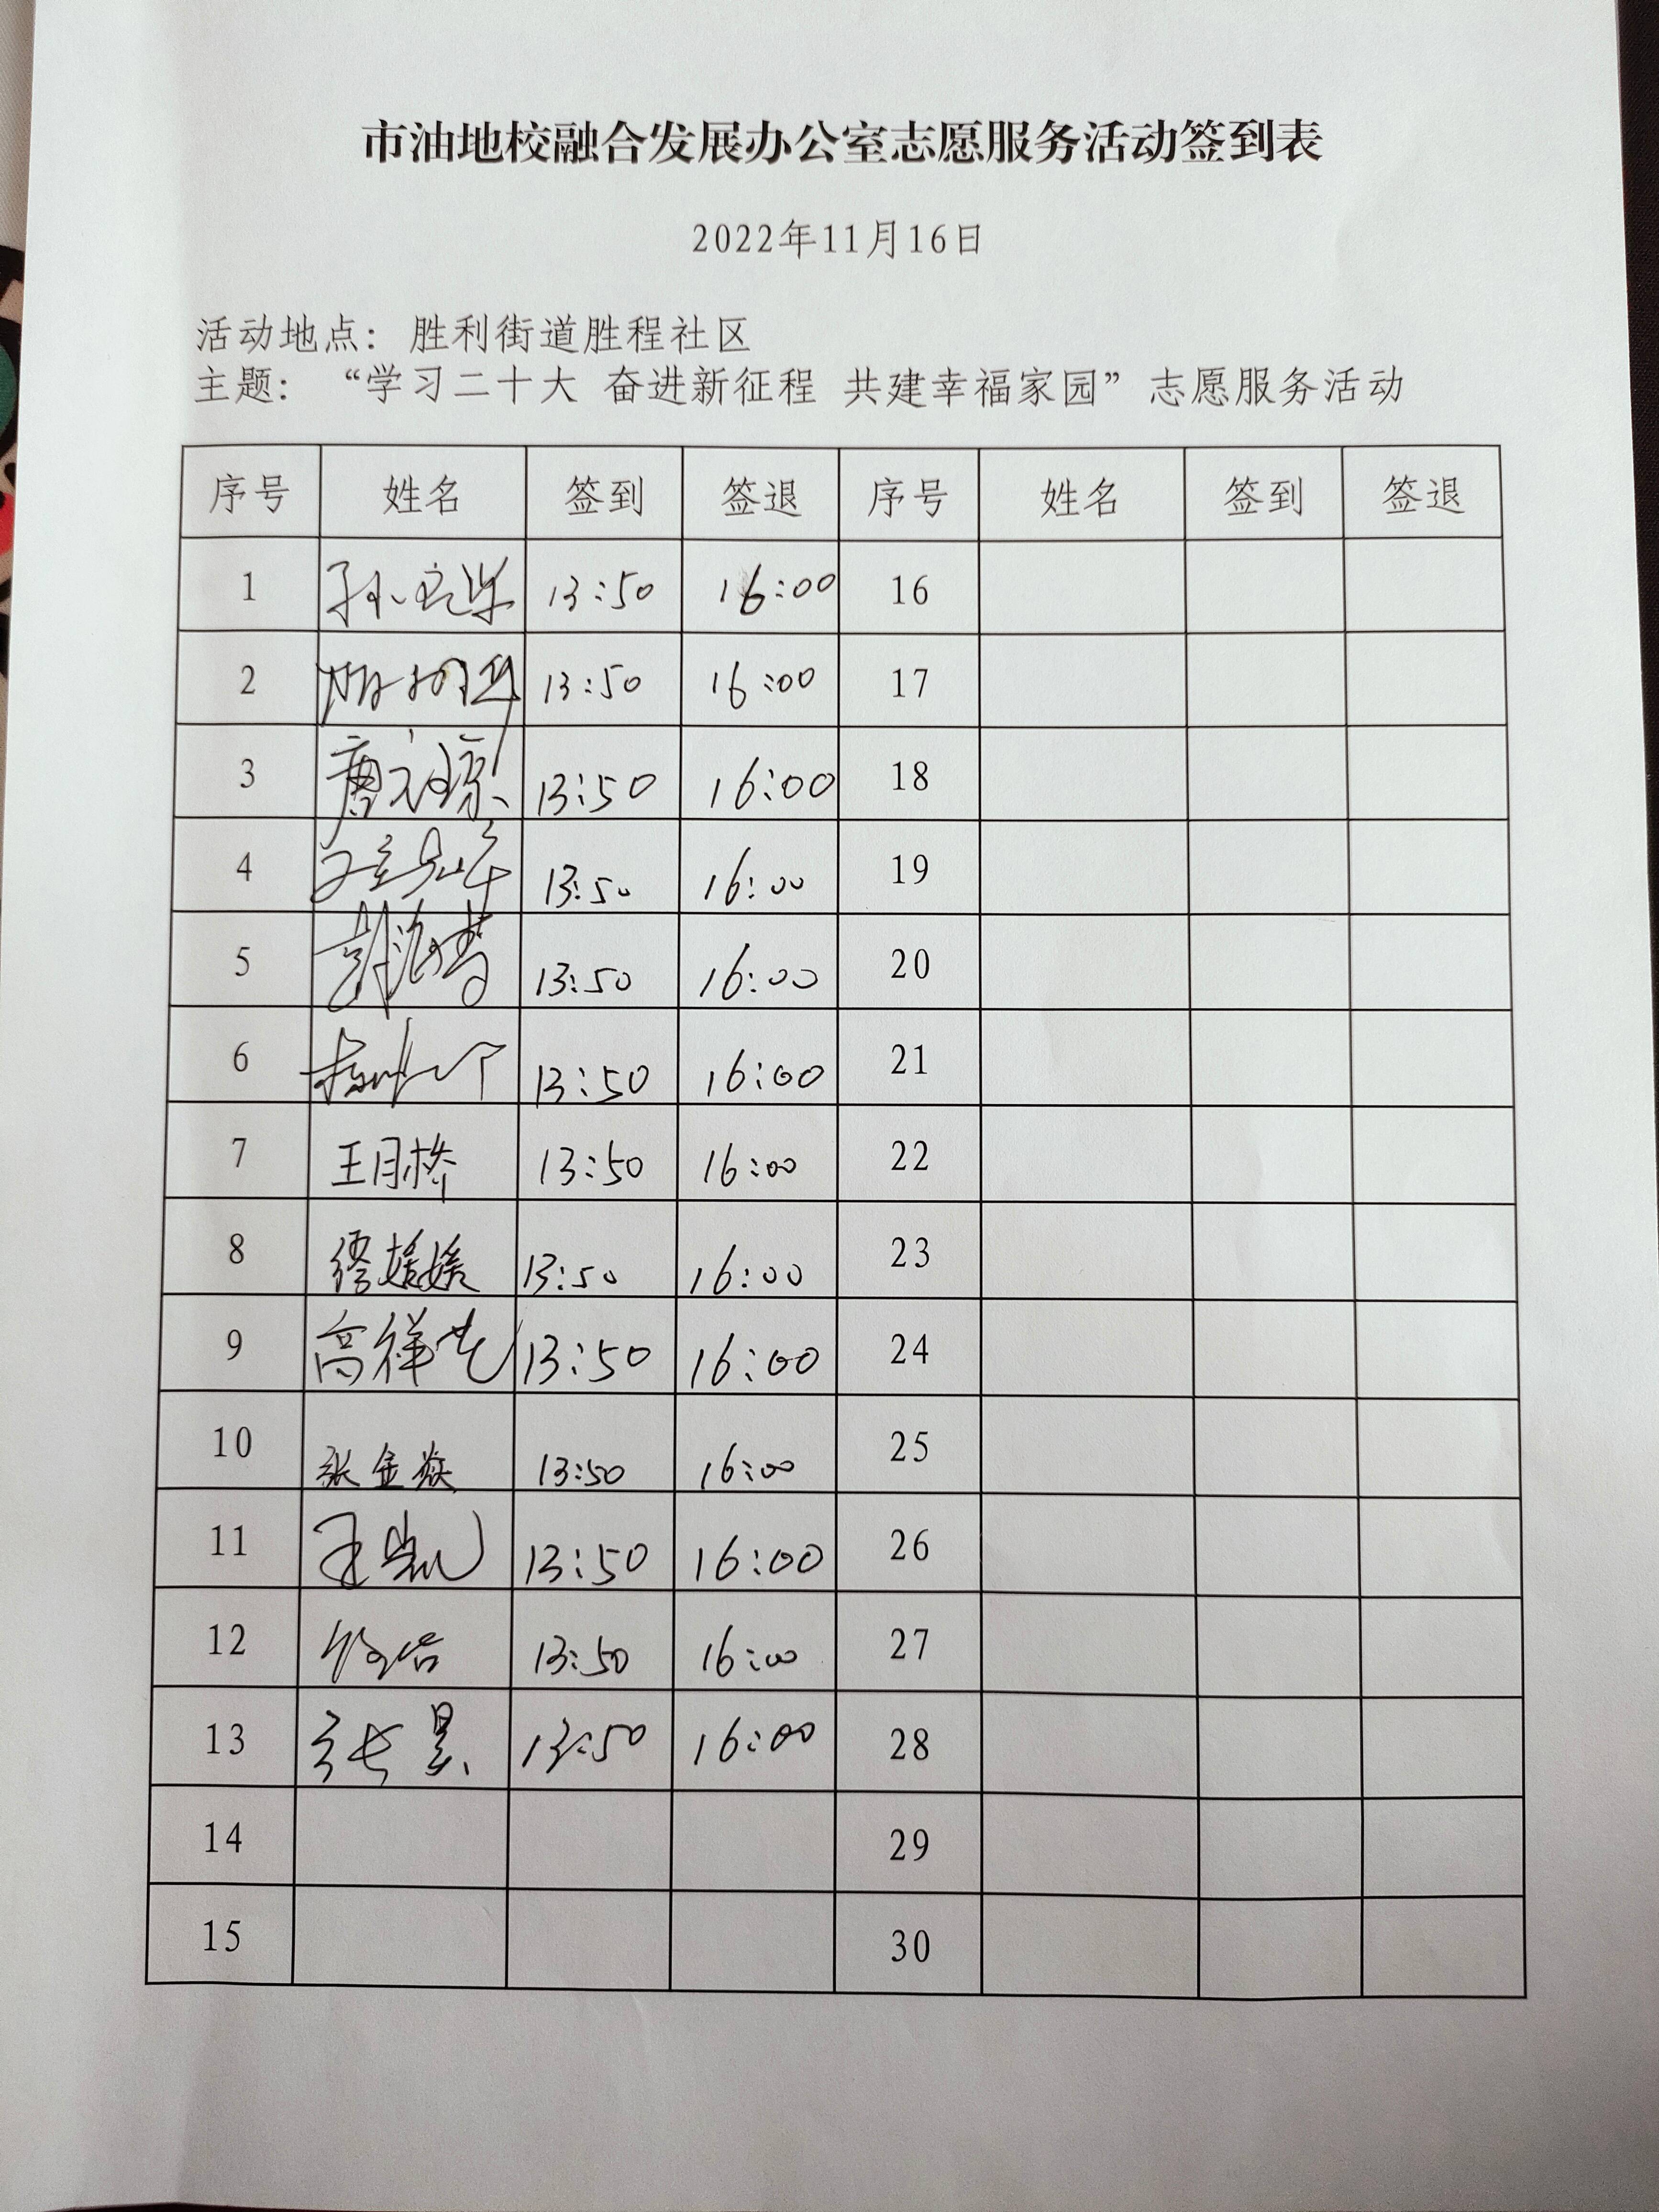 市油地校融合发展办公室志愿服务活动签到表
2022年11月16日
活动地点：胜利街道胜程社区
主题：“学习二十大 奋进新征程 共建幸福家园”志愿服务活动
序号 姓名 签到 签退 序号 姓名 签到 签退
1 13:50 16:00 16
2 13:50 16:00 17
3 13:50 16:00 18
4 13:50 16:00 19
5 13:50 16:00 20
6 13:50 16:00 21
7 王月桥 13:50 16:00 22
8 缪媛媛 13:50 16:00 23
9 高祥 13:50 16:00 24
10 张金焱 13:50 16:00 25
11 王凯 13:50 16:00 26
12 13:50 16:00 27
13 张昊 13:50 16:00 28
14 29
15 30